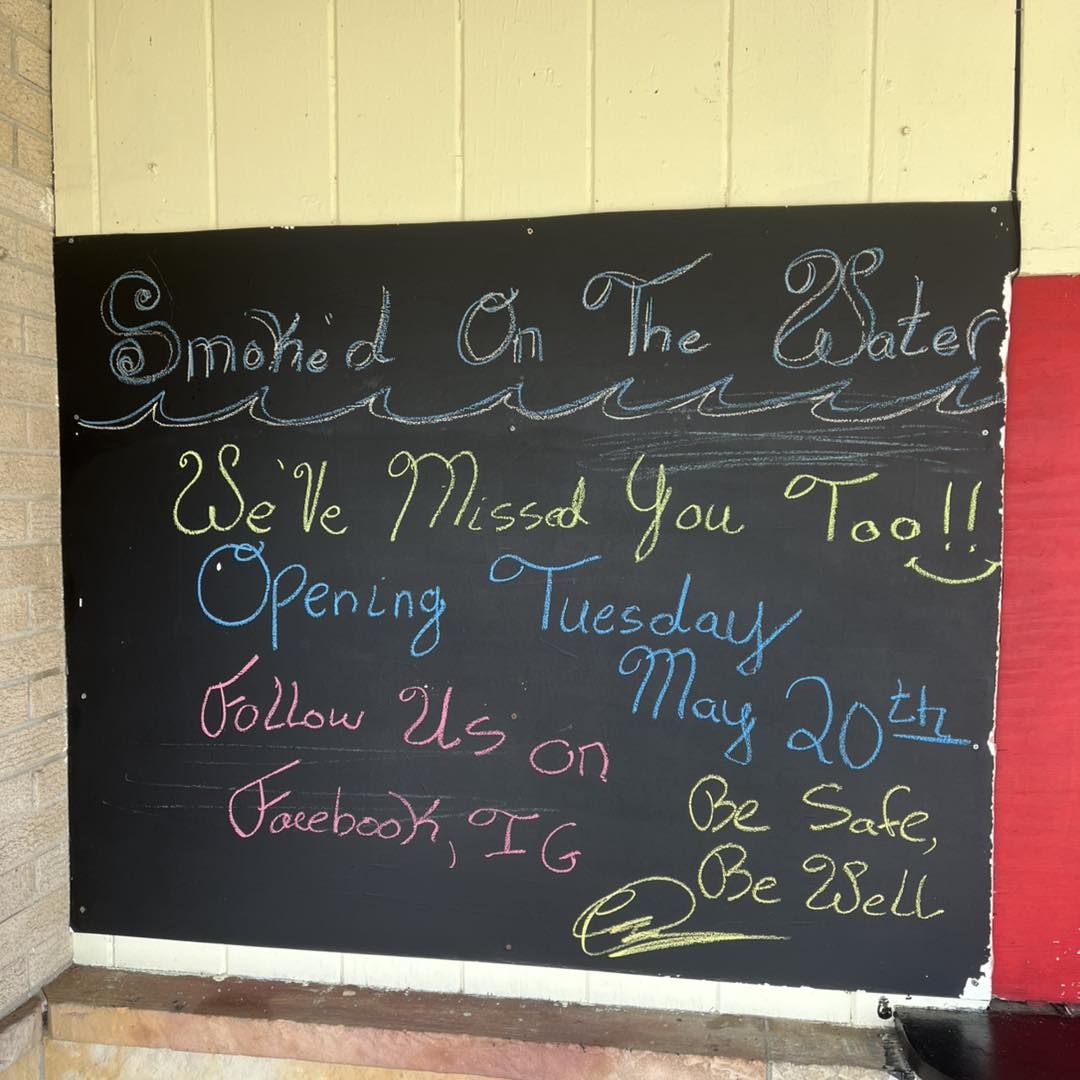 Smoke'd On The Water
We've Missed You Too!!
Opening Tuesday
May 20th
Follow Us on
Facebook, IG
Be Safe,
Be Well